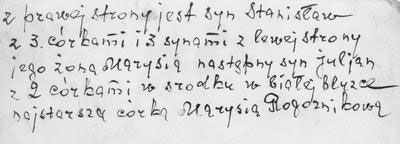 z prawej strony jest syn Stanisław
z 3. córkami i 3 synami z lewej strony
jego żoną Marysią następny syn juljan
z 2 córkami w srodku w białej blyzce
najstarsza córką Marysią Rogoznikową